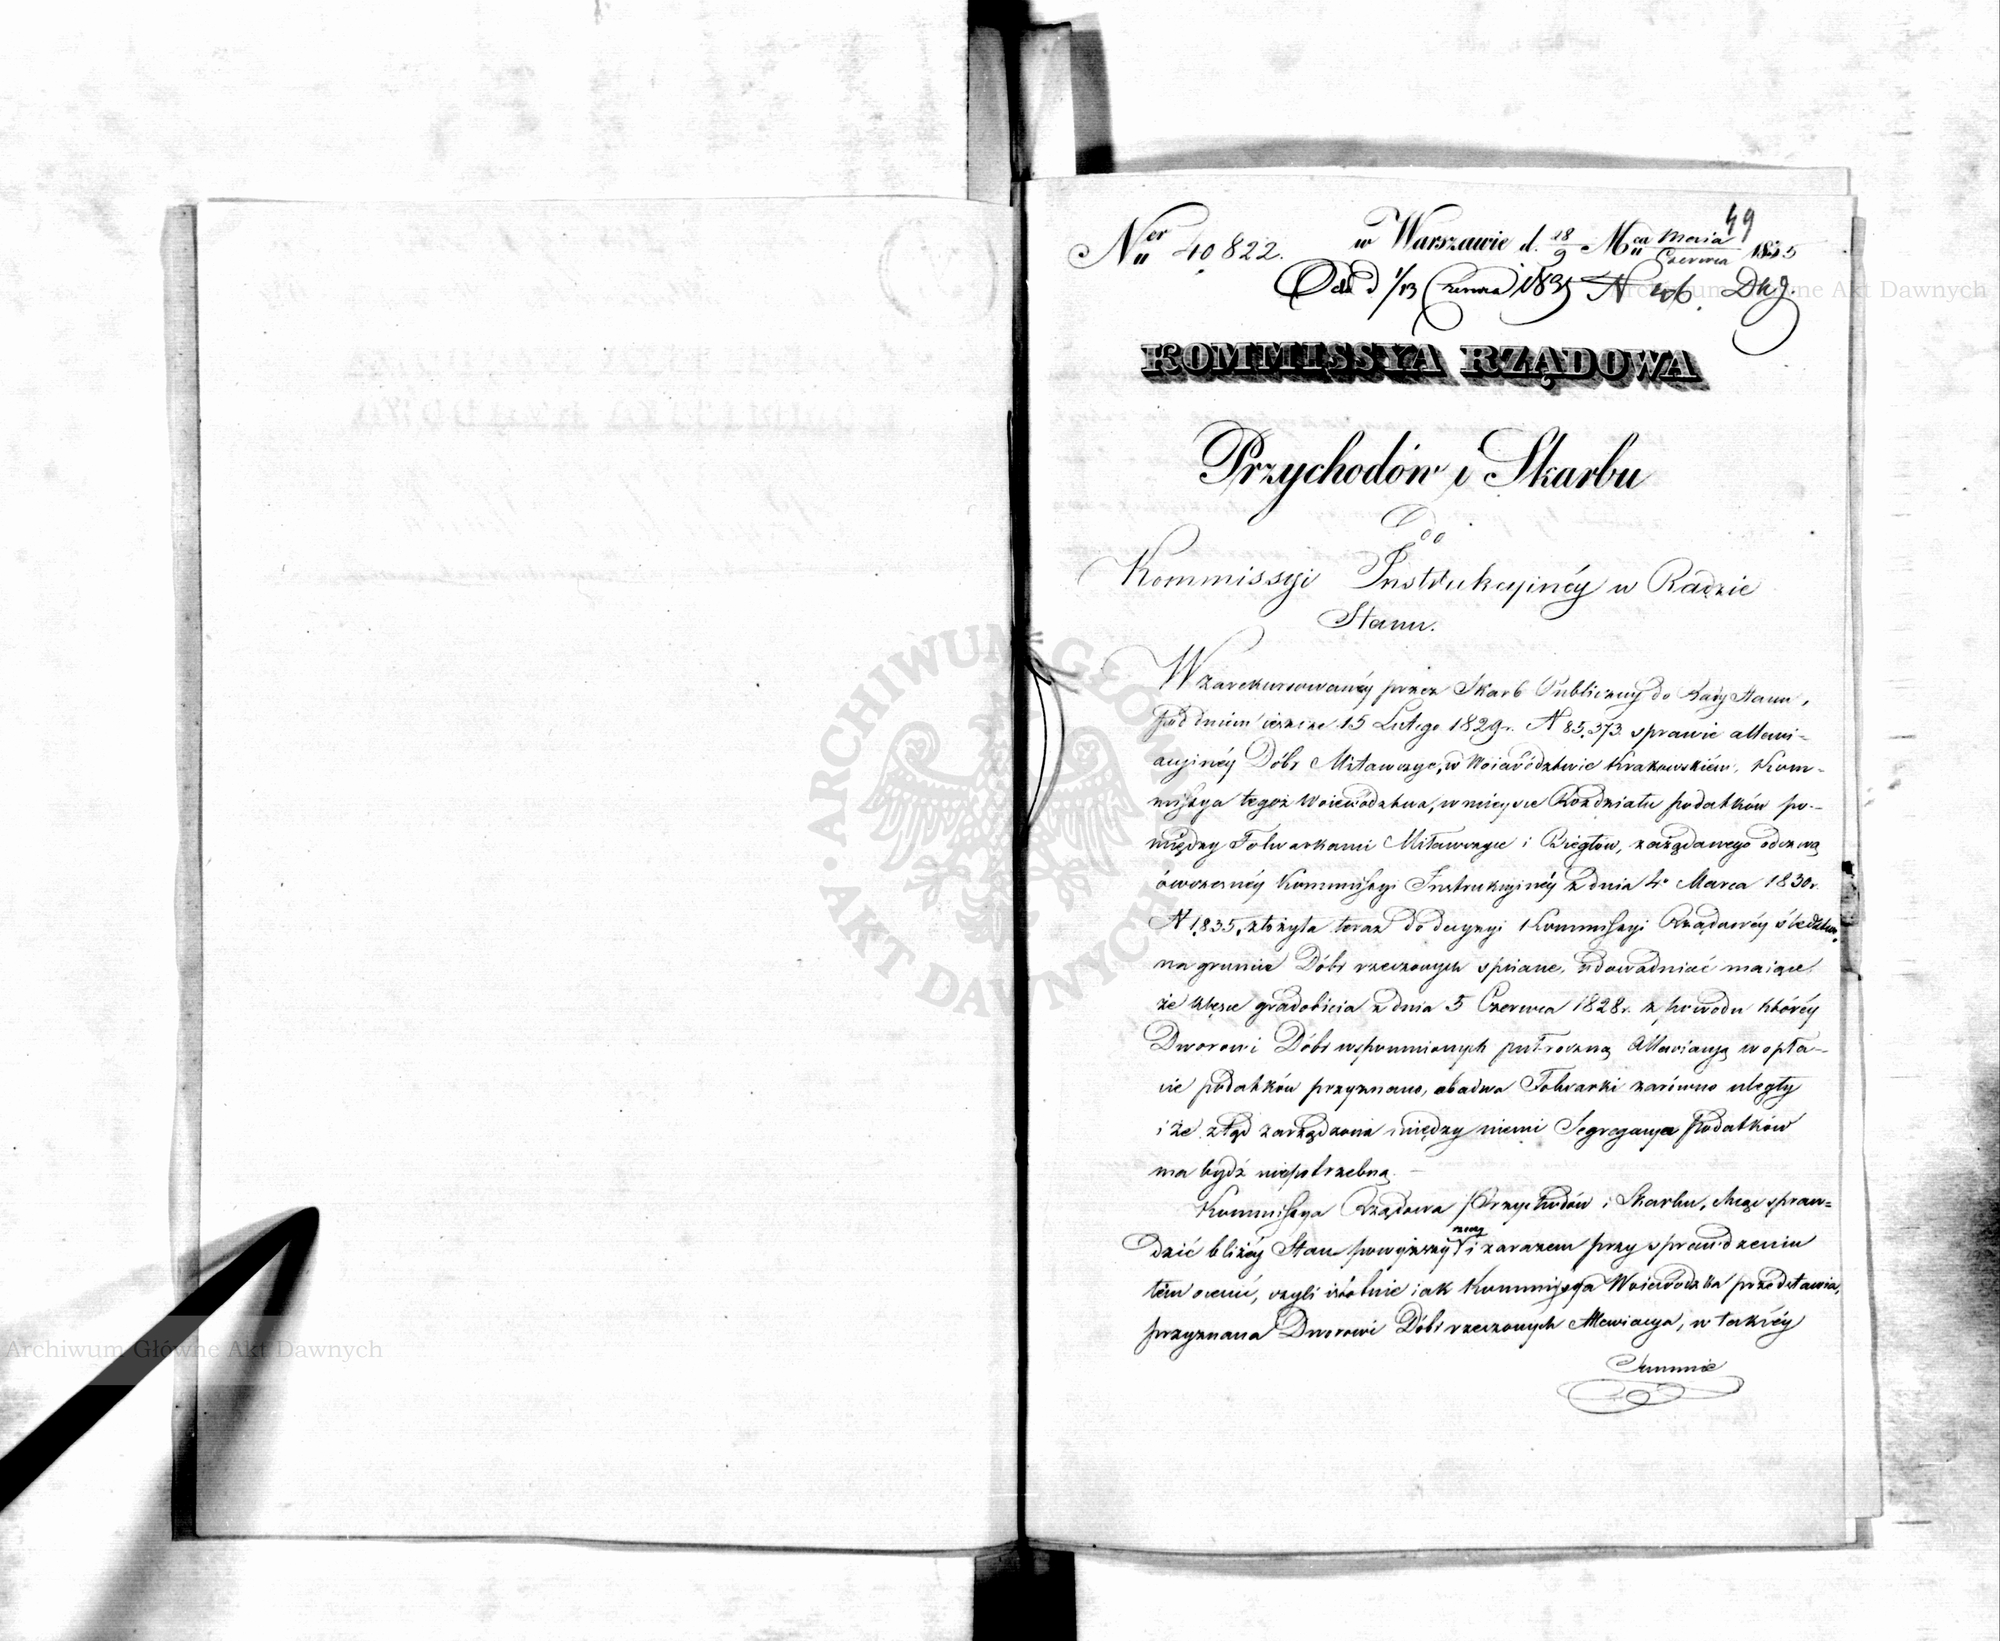 49
Ner 40822. w Warszawie d. 28/9 Mca Maia/Czerwca 1835
Odd d 1/13 Czerwca 1835 N
KOMMISSYA RZĄDOWA
Przychodów i Skarbu
Do
Kommissyi Instrukcyinéy w Radzie
Stanu.
W zarekursowanéy przez Skarb Publiczny do Rady Stanu,
pod dniem ieszcze 15 Lutego 1829r. N 85,373. sprawie allewi-
acyinéy Dóbr Miławczyce, w Woiewództwie Krakowskiém, Kom-
missya tegoż Woiewództwa, w mieysce Rozdziału podatków po-
między Folwarkami Miławczyce i Biegłów, zażądanego odezwą
ówczesnéy Kommissyi Instrukcyinéy z dnia 4o Marca 1830r.
N 1,835, złożyła teraz do decyzyi Kommissyi Rządowéy śledztwo,
na gruncie Dóbr rzeczonych spisane, udowadniać maiące,
że klęsce gradobicia z dnia 5 Czerwca 1828r. z powodu któréy
Dworowi Dóbr wspomnionych półroczną Allewiacyą w opła-
cie podatków przyznano, obadwa Folwarki zarówno uległy
i że ztąd zarządzona między niemi Segregacya Podatków
ma bydź niepotrzebną.
Kommissya Rządowa Przychodów i Skarbu, chcąc spraw-
dzić bliżéy Stan powyższy rzeczy i zarazem przy sprawdzeniu
tém ocenić, czyli istotnie iak Kommissya Woiewódzka przedstawia,
przyznana Dworowi Dóbr rzeczonych Allewiacya, w takiéy
Summie
ARCHIWUM GŁÓWNE AKT DAWNYCH
Archiwum Główne Akt Dawnych
Archiwum Główne Akt Dawnych